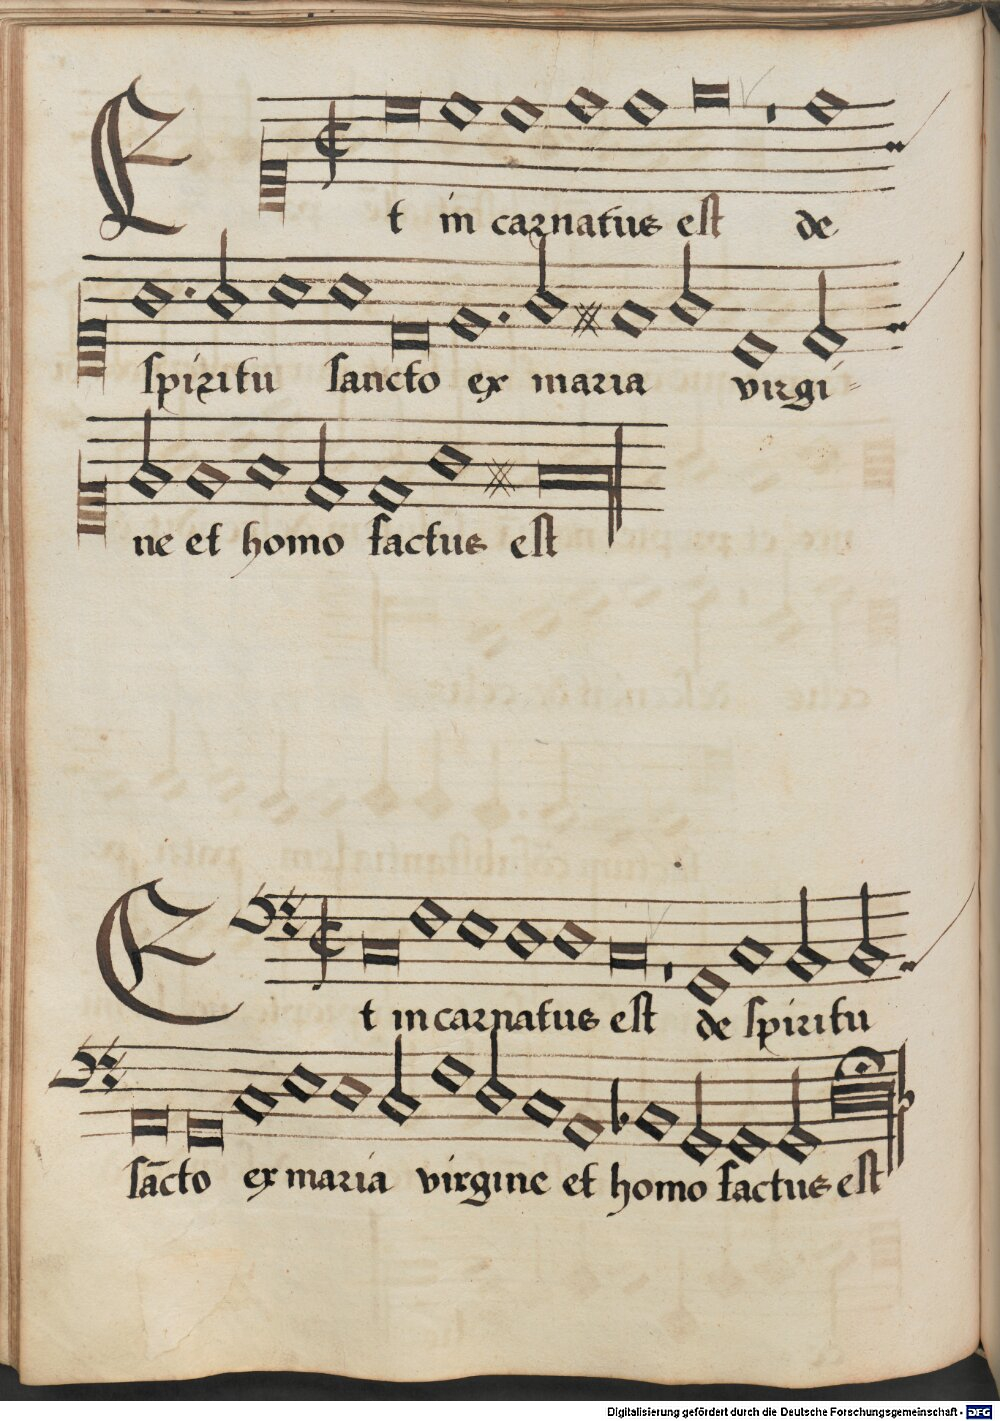 Et in carnatus est de
spiritu sancto ex maria virgi-
ne et homo factus est
Et in carnatus est de spiritu
sācto ex maria virgine et homo factus est
Digitalisierung gefördert durch die Deutsche Forschungsgemeinschaft - DFG